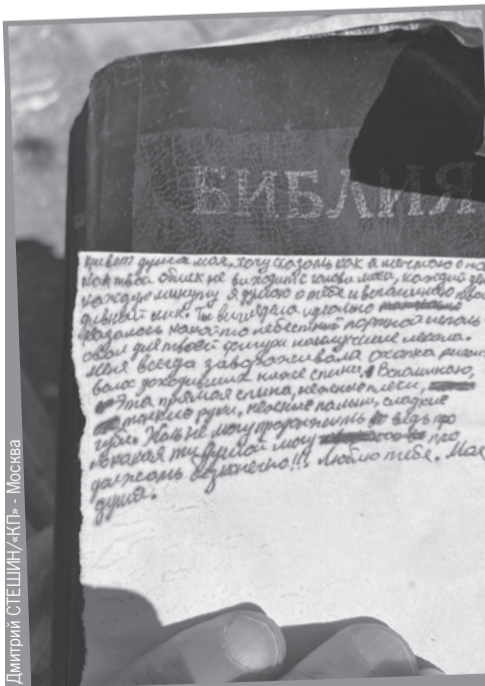 БИБЛИЯ
привет душа моя, хочу сказать как я мечтаю о
как твой облик не виходит с голови моей, каждий
каждую минуту я думаю о тебе и вспоминаю
дивний лик. Ти виглядела идеально
казалось какой то небесний портной исполь
овал для твоей фигури наилучшие лекала.
Меня всегда завораживала охапка
волос доходивших ниже спини. Вспоминаю,
Эта прямая спина, нежные плечи,
тонкие руки, нежные пальци, сладкие
губи. Жаль не могу продолжить ведь про
то какая ти могу про
должать безконечно!!! Люблю тебя. Моя
душа.
Дмитрий СТЕШИН/«КП» - Москва